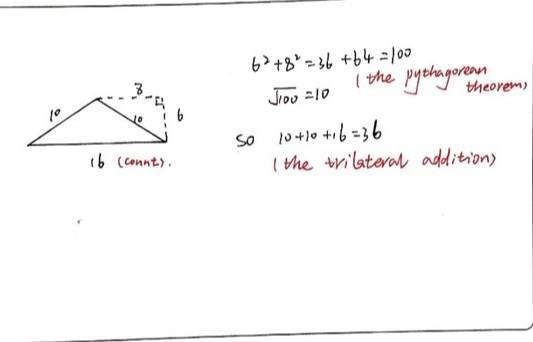 8
10
10
6
16 (count).
6²+8²=36+64=100
(the pythagorean
theorem)
√100=10
so 10+10+16=36
(the trilateral addition)